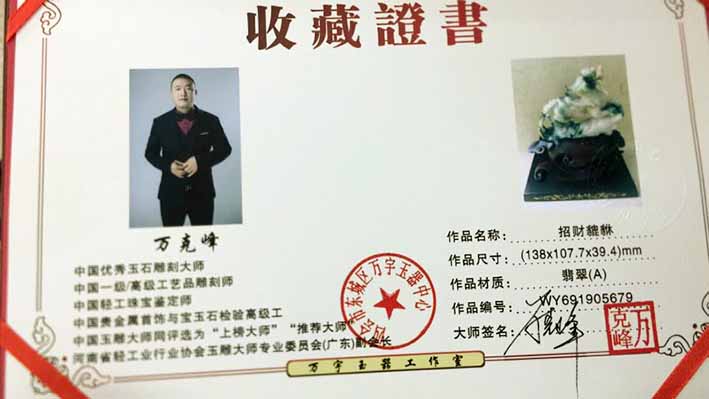 收藏證書
万克峰
中国优秀玉石雕刻大师
中国一级/高级工艺品雕刻师
中国轻工珠宝鉴定师
中国贵金属首饰与宝玉石检验高级工
中国玉雕大师网评选为“上榜大师”“推荐大师”
河南省轻工业行业协会玉雕大师专业委员会(广东)副会长
作品名称：招财貔貅
作品尺寸：(138x107.7x39.4)mm
作品材质：翡翠(A)
作品编号：WY691905679
大师签名：
万克峰
四会市东城区万宇玉器中心
万宇玉器工作室